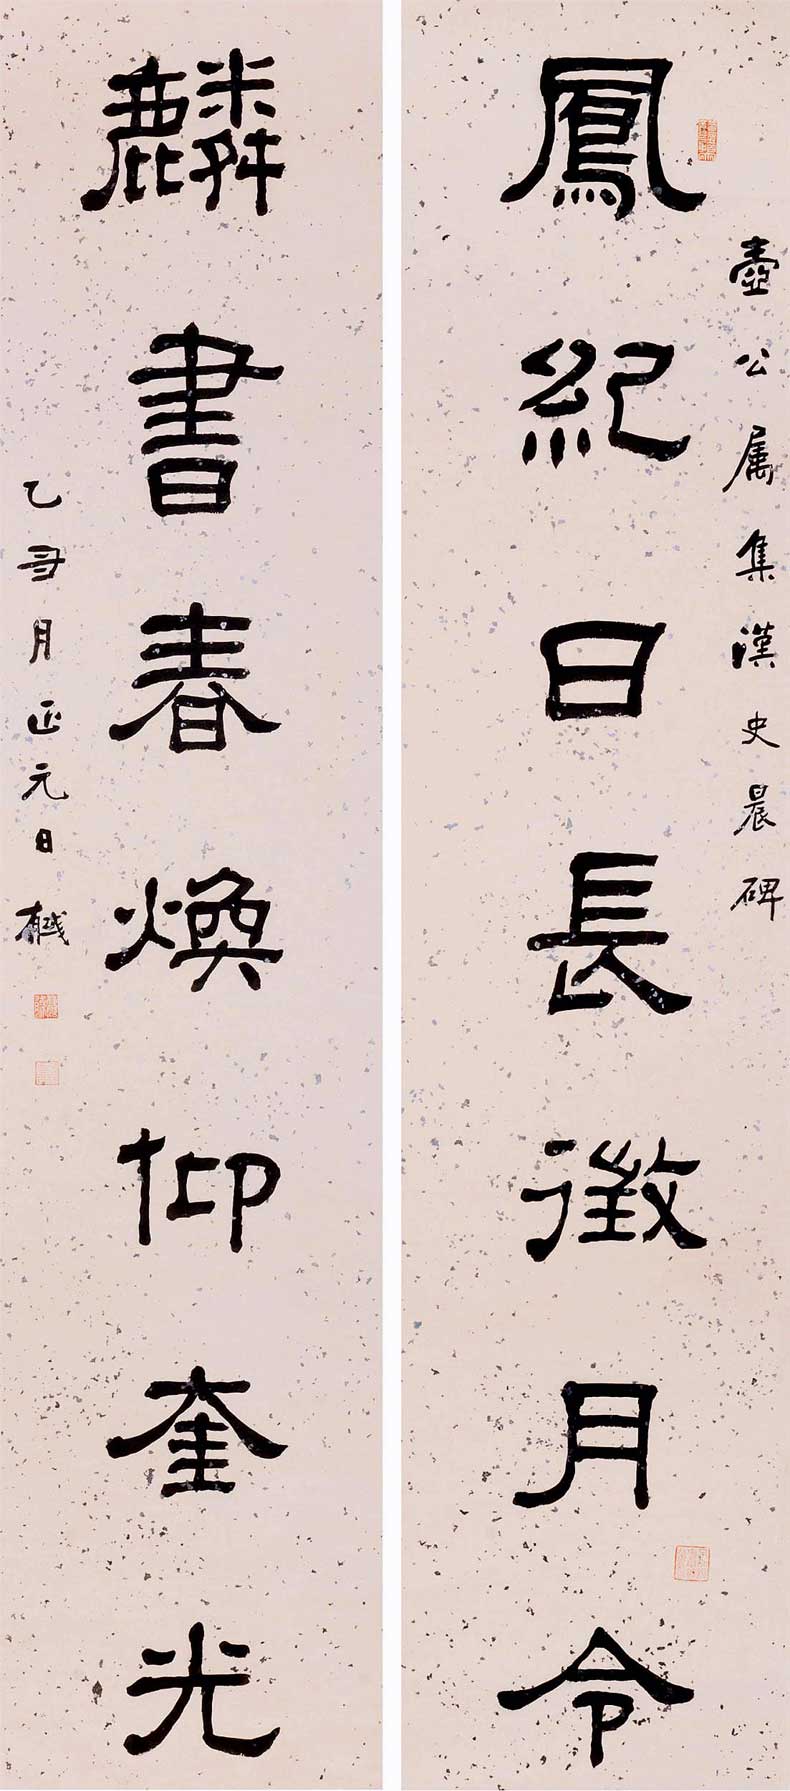 壺公属集漢史晨碑
鳳紀日長徵月令
麟書春煥仰奎光
乙丑月正元日樾